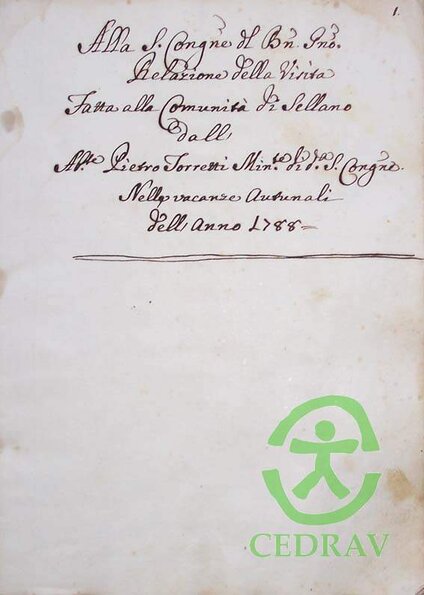 1.
Alla S. Congne dl Bn Gno.
Relazione della Visita
Fatta alla Comunità di Sellano
dall
Abte Pietro Torretti Minte di da S. Congne.
Nelle vacanze Autunali
dell Anno 1788
CEDRAV